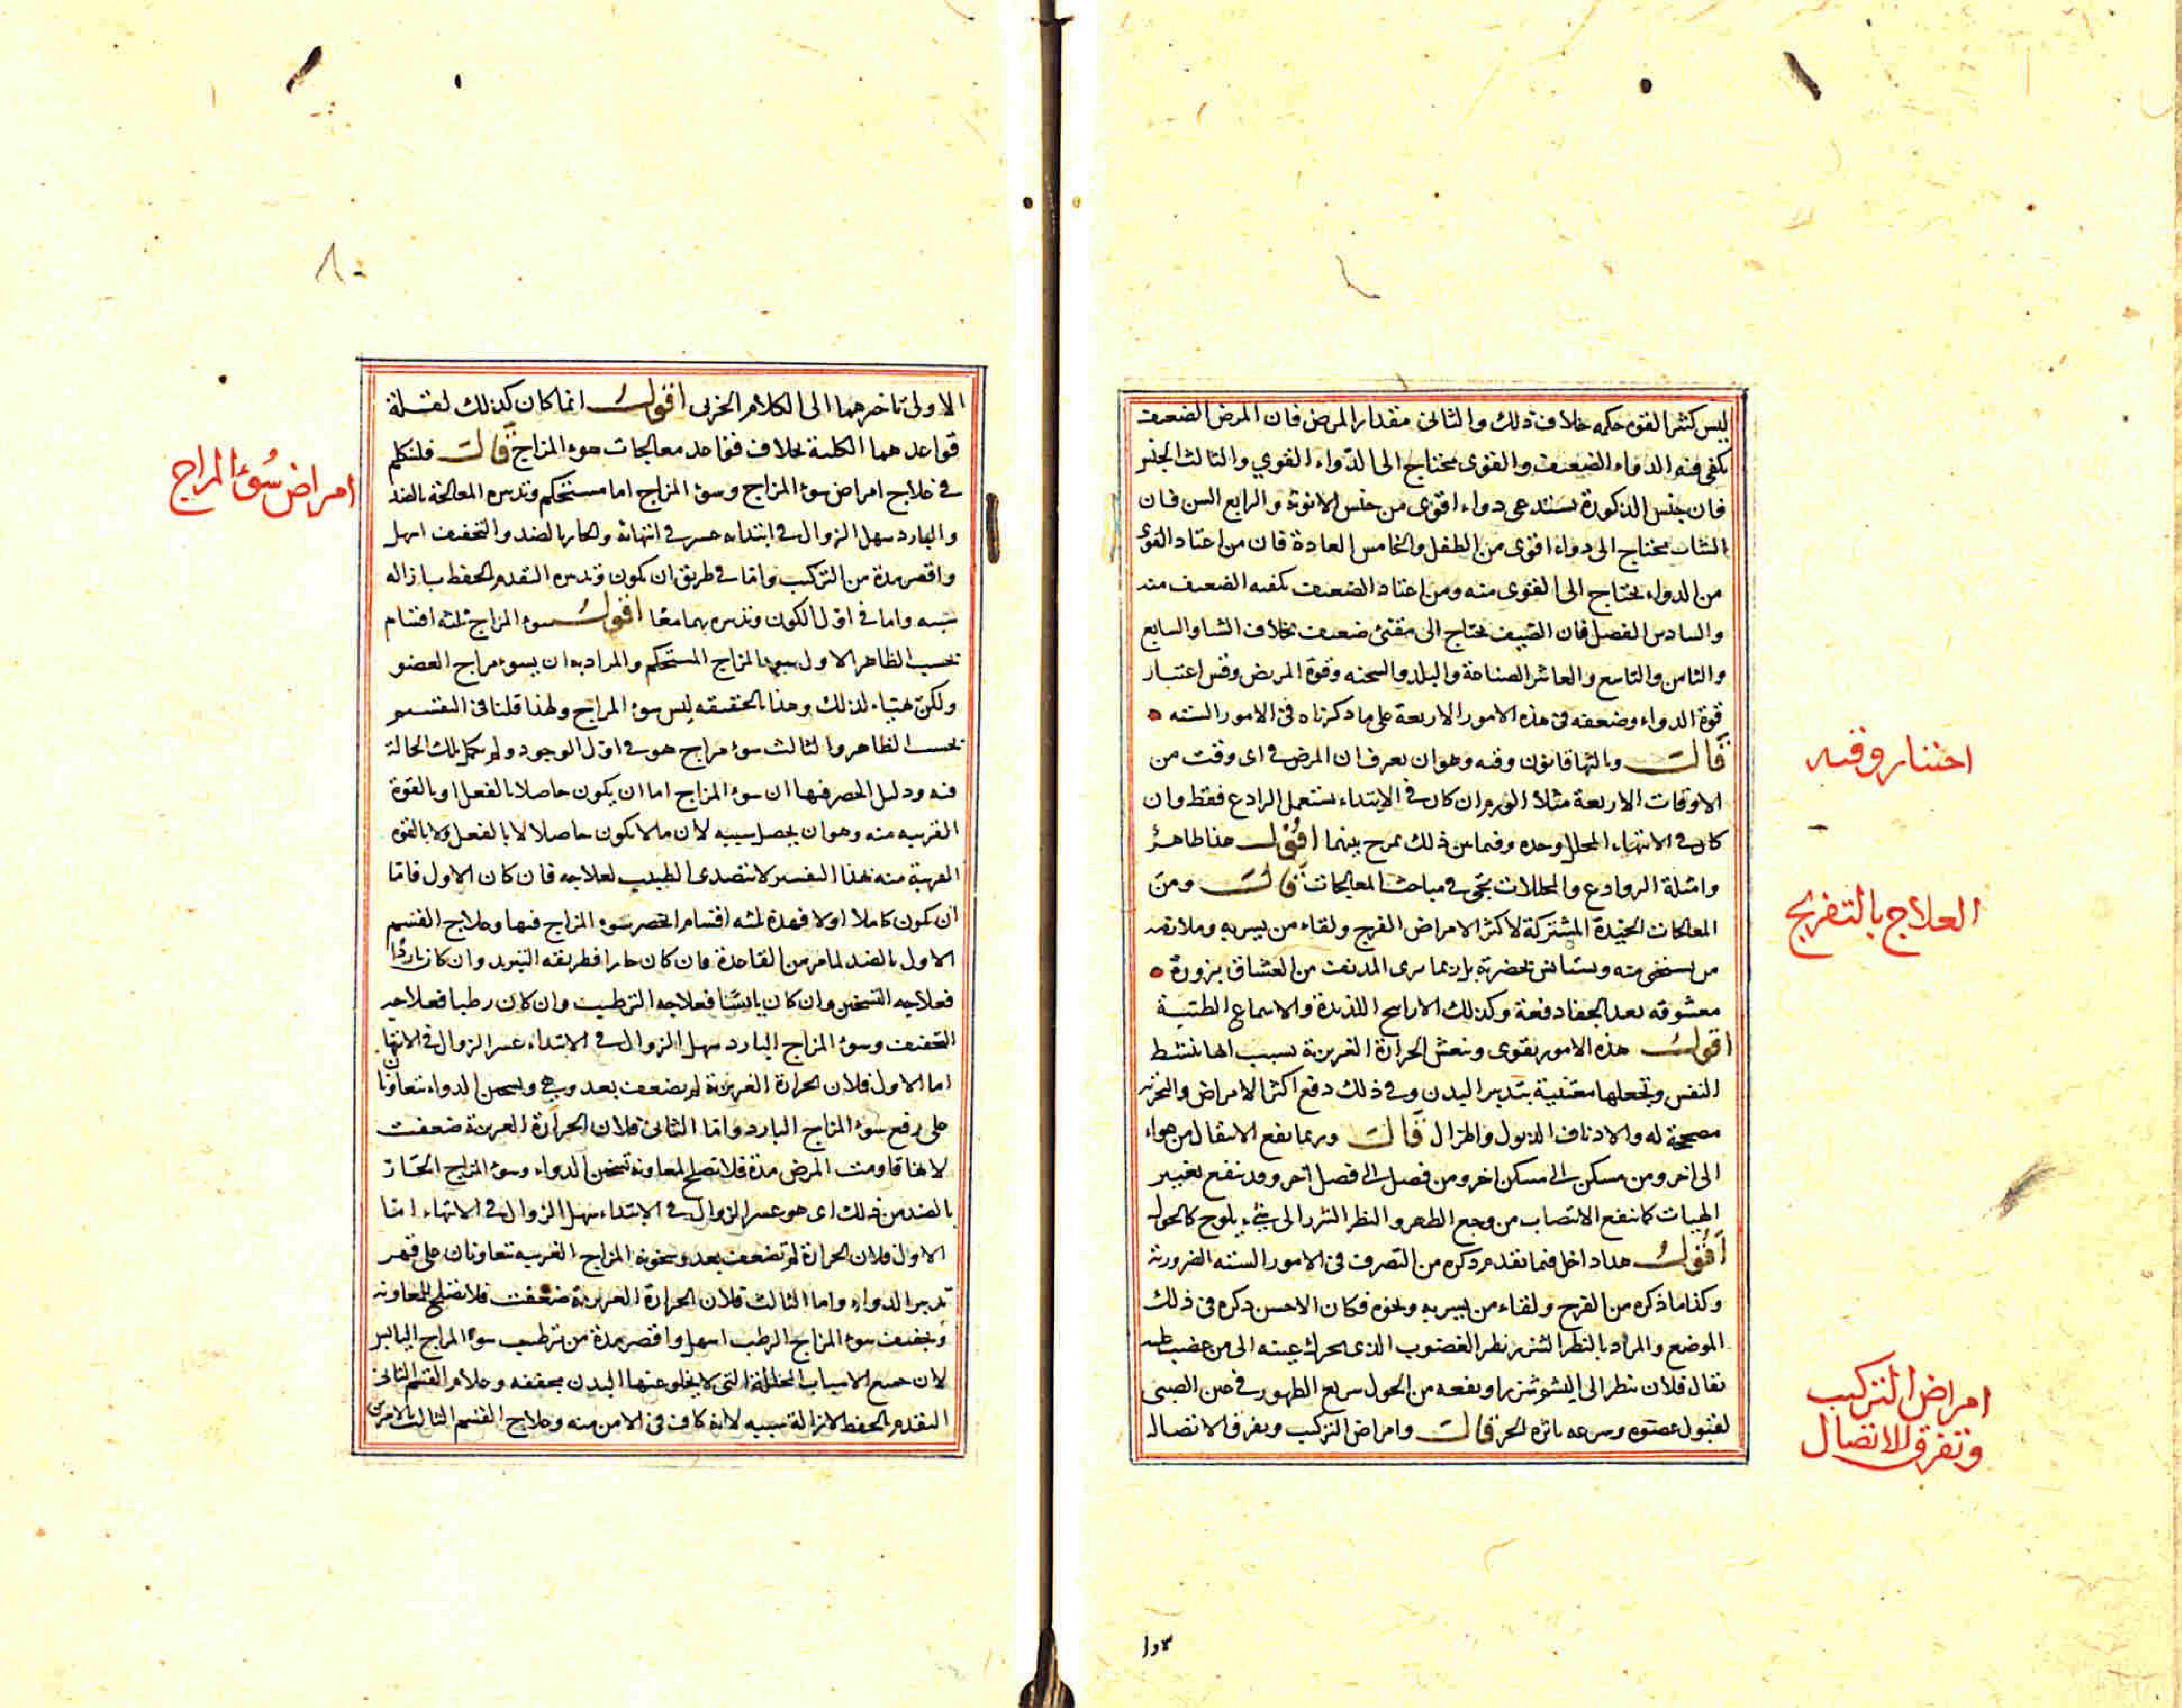 ليس كثير القوة حكمه خلاف ذلك والثانى مقدار المرض فان المرض الضعيف
يكفى فيه الدواء الضعيف والقوى يحتاج الى الدواء القوي والثالث الجنس
فان جنس الذكورة يستدعى دواء اقوى من جنس الانوثة والرابع السن فان
الشاب يحتاج الى دواء اقوى من الطفل والخامس العادة فان من اعتاد القوى
من الدواء يحتاج الى القوى منه ومن اعتاد الضعيف يكفيه الضعيف منه
والسادس الفصل فان الصيف يحتاج الى ضعيف بخلاف الشتا والسابع
والثامن والتاسع والعاشر الصناعة والبلد والسحنه وقوة المريض وقس اعتبار
قوة الدواء وضعفه فى هذه الامور الاربعة على ما ذكرناه فى الامور السته
قال وثالثها قانون وقته وهو ان يعرف ان المرض فى اى وقت من
الاوقات الاربعة مثلا الورم ان كان فى الابتداء يستعمل الرادع فقط وان
كان فى الانتهاء المحلل وحده وفيما بين ذلك يمزج بينهما اقول هذا ظاهر
وامثلة الروادع والمحللات تجئ فى مباحث المعالجات قال ومن
المعالجات الجيدة المشتركة لاكثر الامراض الفرح ولقاء من يسر به وملازمة
من يستحى منه ويستانس بحضرته بل ربما برى المدنف من العشاق بزورة
معشوقه بعد الجفا دفعة وكذلك الاراييح اللذيذة والاسماع الطيبة
اقول هذه الامور تقوى وتنعش الحرارة الغريزية بسبب انها تنشط
النفس وتجعلها معتنية بتدبير البدن وفى ذلك دفع اكثر الامراض
والادناف الذبول والهزال قال وربما نفع الانتقال من هواء
الى اخر ومن مسكن الى مسكن اخر ومن فصل الى فصل آخر وقد ينفع تغيير
الهيات كما ينفع الانتصاب من وجع الظهر والنظر الشزر الى شئ يلوح كالحول
اقول هذا داخل فيما تقدم ذكره من التصرف فى الامور السته الضرورية
وكذا ما ذكره من الفرح ولقاء من يسر به ونحوه فكان الاحسن ذكره فى ذلك
الموضع والمراد بالنظر الشزر نظر الغضوب الذى يحرك عينه الى من غضب عليه
يقال فلان ينظر الى الشئ شزرا ونفعه من الحول سريع الظهور فى عين الصبى
لقبول عضوه وسرعه تاثره قال وامراض التركيب وتفرق الاتصال
اختيار وقته
العلاج بالتفريح
امراض التركيب
وتفرق الاتصال
الاولى تاخيرهما الى الكلام الجزيى اقول انما كان كذلك لقلة
قواعدهما الكلية بخلاف قواعد معالجات سوء المزاج قال فلنتكلم
فى علاج امراض سوء المزاج وسوء المزاج اما مستحكم وتدبيره المعالجة بالضد
والبارد سهل الزوال فى ابتدائه عسر فى انتهائه والحار بالضد والتجفيف اسهل
واقصر مدة من الترطيب واما فى طريق ان يكون وتدبيره التقدم بالحفظ بازالة
سببه واما فى اول الكون وتدبيره بهما معا اقول سوء المزاج ثلثه اقسام
بحسب الظاهر الاول سوء المزاج المستحكم والمراد به ان يسوء مزاج العضو
ولكن تهيّاء لذلك وهذا بالحقيقه ليس سوء المزاج ولهذا قلنا فى التقسيم
بحسب الظاهر والثالث سوء مزاج هو فى اول الوجود ولم تكمل تلك الحالة
فيه ودليل الحصر فيها ان سوء المزاج اما ان يكون حاصلا بالفعل او بالقوة
القريبه منه وهو ان يحصل سببه لان ما لا يكون حاصلا لا بالفعل ولا بالقوة
القريبة منه بهذا التفسير لا يتصدى الطبيب لعلاجه فان كان الاول فاما
ان يكون كاملا او لا فهذه ثلثه اقسام انحصر سوء المزاج فيها وعلاج القسم
الاول بالضد لما مر من القاعدة فان كان حارا فطريقه التبريد وان كان باردًا
فعلاجه التسخين وان كان يابسًا فعلاجه الترطيب وان كان رطبا فعلاجه
التجفيف وسوء المزاج البارد سهل الزوال فى الابتداء عسر الزوال فى الانتهاء
اما الاول فلان الحرارة الغريزية لم تضعف بعد وهى وتسخين الدواء يتعاونان
على رفع سوء المزاج البارد واما الثانى فلان الحرارة الغريزية ضعفت
لانها قاومت المرض مدة فلا تصلح لمعاونة تسخين الدواء وسوء المزاج الحار
بالضد من ذلك اى هو عسر الزوال فى الابتداء سهل الزوال فى الانتهاء اما
الاول فلان الحرارة لم تضعف بعد وسخونة المزاج الغريبه تتعاونان على قهر
تبريد الدواء واما الثالث فلان الحرارة الغريزية ضعفت فلا تصلح للمعاونة
وتجفيف سوء المزاج الرطب اسهل واقصر مدة من ترطيب سوء المزاج اليابس
لان جميع الاسباب المحللة التى لا يخلو عنها البدن مجففه وعلاج القسم الثانى
التقدم بالحفظ لازالة سببيه لانه كاف فى الامن منه وعلاج القسم الثالث بالامرين
امراض سُوء المزاج
٨٠